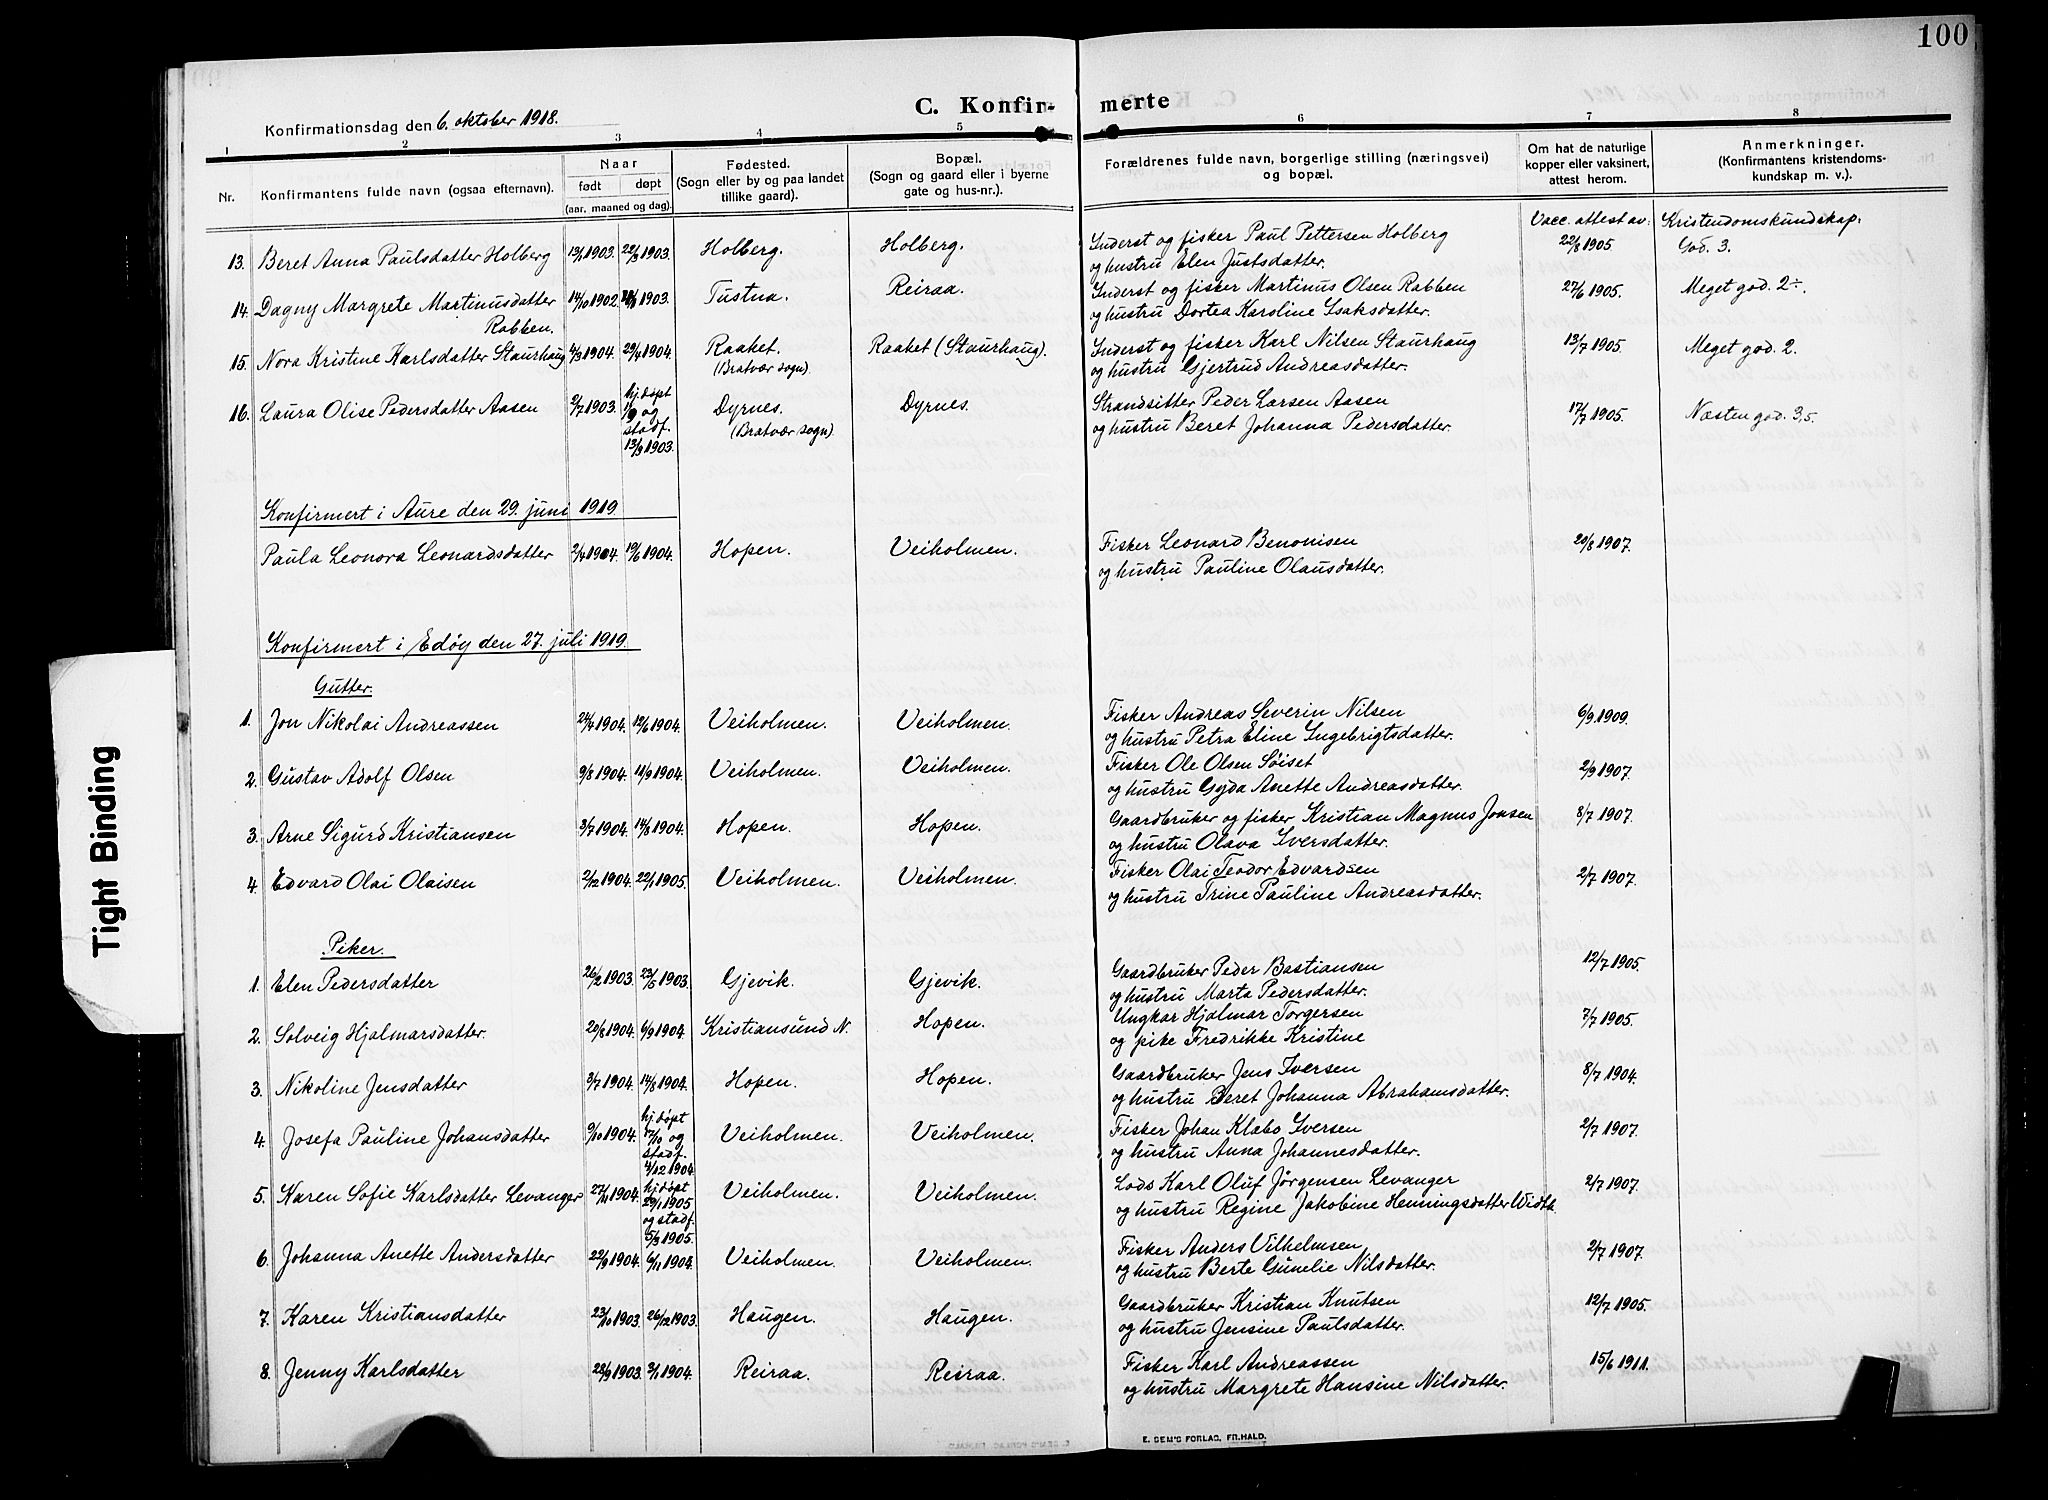 100
C. Konfir-merte
Konfirmationsdag den 6. oktober 1918.
1 2 3 4 5 6 7 8
Nr. Konfirmantens fulde navn (ogsaa efternavn). Naar født døpt (aar, maaned og dag). Fødested. (Sogn eller by og paa landet tillike gaard). Bopæl. (Sogn og gaard eller i byerne gate og hus-nr.). Forældrenes fulde navn, borgerlige stilling (næringsvei) og bopæl. Om hat de naturlige kopper eller vaksinert, attest herom. Anmerkninger. (Konfirmantens kristendoms-kundskap m. v.).
Vacc. attest av: Kristendomskundskap:
13. Beret Anna Paulsdatter Holberg 13/1 1903. 22/3 1903. Holberg. Holberg. Inderst og fisker Paul Pettersen Holberg 22/8 1905 God. 3.
og hustru Elen Justsdatter.
14. Dagny Margrete Martinusdatter 14/10 1902. 1903. Tustna. Reiraa. Inderst og fisker Martinus Olsen Rabben 27/6 1905. Meget god. 2÷.
Rabben. og hustru Dortea Karoline Isaksdatter.
15. Nora Kristine Karlsdatter Staurhaug 4/3 1904. 29/4 1904. Raaket. Raaket (Staurhaug). Inderst og fisker Karl Nilsen Staurhaug 13/7 1905. Meget god. 2.
(Bratvær sogn). og hustru Gjertrud Andreasdatter.
16. Laura Olise Pedersdatter Aasen 2/7 1903. hj. døpt 1/9 og stadf. 13/9 1903. Dyrnes. Dyrnes. Strandsitter Peder Larsen Aasen 17/7 1905. Næsten god. 3,5.
(Bratvær sogn) og hustru Beret Johanna Pedersdatter.
Konfirmert i Aure den 29. juni 1919
Paula Leonora Leonardsdatter 2/4 1904. 19/6 1904. Hopen. Veiholmen. Fisker Leonard Benonisen 20/8 1907.
og hustru Pauline Olausdatter.
Konfirmert i Edøy den 27. juli 1919.
Gutter.
1. Jon Nikolai Andreassen 24/4 1904. 12/6 1904. Veiholmen. Veiholmen. Fisker Andreas Severin Nilsen 6/9 1909.
og hustru Petra Eline Ingebrigtsdatter.
2. Gustav Adolf Olsen 9/8 1904. 11/9 1904. Veiholmen. Veiholmen. Fisker Ole Olsen Søiset 2/9 1907.
og hustru Gyda Anette Andreasdatter.
3. Arne Sigurd Kristiansen 3/7 1904. 14/8 1904. Hopen. Hopen. Gaardbruker og fisker Kristian Magnus Jonsen 8/7 1907.
og hustru Olava Iversdatter.
4. Edvard Olai Olaisen 2/12 1904. 22/1 1905. Veiholmen. Veiholmen. Fisker Olai Teodor Edvardsen 2/7 1907.
og hustru Trine Pauline Andreasdatter.
Piker.
1. Elen Pedersdatter 26/2 1903. 23/5 1903. Gjevik. Gjevik. Gaardbruker Peder Bastiansen 12/7 1905.
og hustru Marta Pedersdatter.
2. Solveig Hjalmarsdatter. 20/8 1904. 6/9 1904. Kristiansund N. Hopen. Ungkar Hjalmar Torgersen 7/7 1905.
og pike Fredrikke Kristine
3. Nikoline Jensdatter 3/7 1904. 14/8 1904. Hopen. Hopen. Gaardbruker Jens Iversen 8/7 1904.
og hustru Beret Johanna Abrahamsdatter.
4. Josefa Pauline Johansdatter 9/10 1904. hj. døpt 17/10 og stadf. 4/12 1904 Veiholmen. Veiholmen. Fisker Johan Klæbo Iversen 2/7 1907.
og hustru Anna Johannesdatter.
5. Karen Sofie Karlsdatter Levanger 27/11 1904. hj. døpt 29/1 1905 og stadf. 5/3 1905. Veiholmen. Veiholmen. Lods Karl Oluf Jørgensen Levanger 2/7 1907.
og hustru Regine Jakobine Henningsdatter
6. Johanna Anette Andersdatter 22/9 1904. 6/11 1904. Veiholmen. Veiholmen. Fisker Anders Vilhelmsen 2/7 1907.
og hustru Berte Gunelie Nilsdatter.
7. Karen Kristiansdatter 23/10 1903. 26/12 1903. Haugen. Haugen. Gaardbruker Kristian Knutsen 12/7 1905.
og hustru Jensine Paulsdatter.
8. Jenny Karlsdatter 28/9 1903. 3/1 1904. Reiraa. Reiraa. Fisker Karl Andreassen 15/6 1911.
og hustru Margrete Hansine Nilsdatter.
E. SEM'S FORLAG, FR.HALD.
Tight Binding